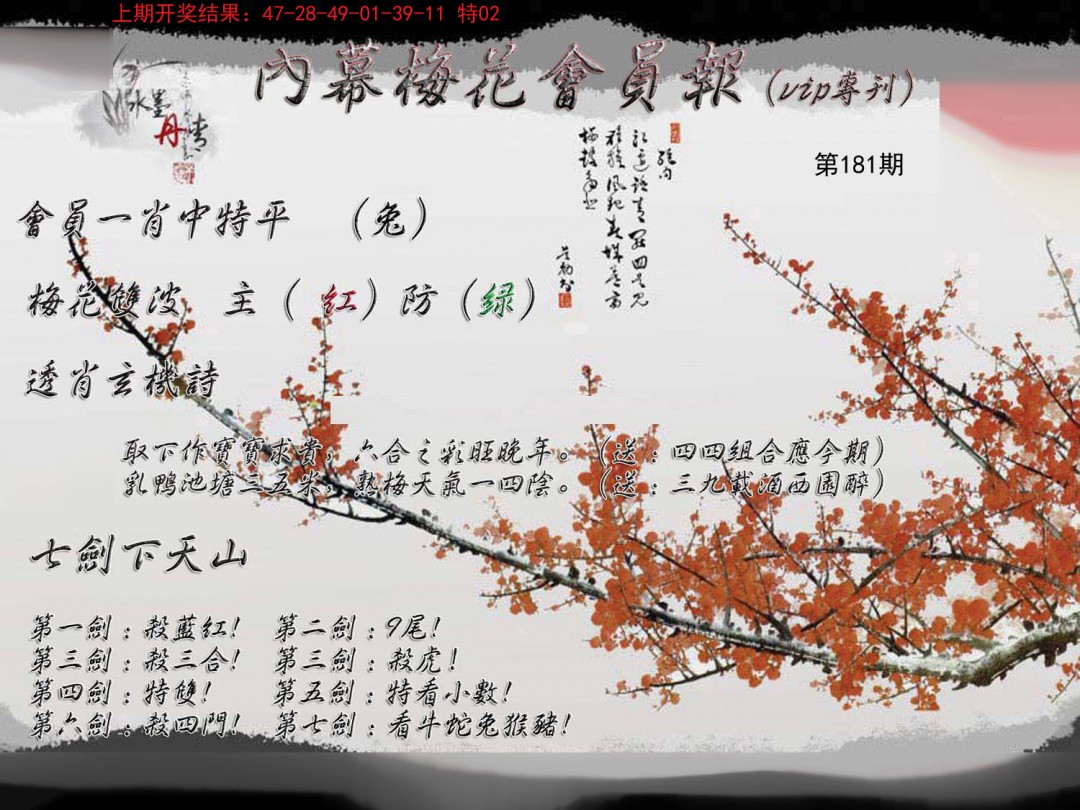 上期开奖结果：47-28-49-01-39-11 特02
內幕梅花會員報（vip專刊）
水墨丹青
第181期
會員一肖中特平 （兔）
梅花雙波 主（紅）防（绿）
透肖玄機詩
取下作寶寶求貴，六合之彩旺晚年。（送：四四組合應今期）
乳鴨池塘三五米，熟梅天氣一四陰。（送：三九載酒西園醉）
七劍下天山
第一劍：殺藍紅！ 第二劍：9尾！
第三劍：殺三合！ 第三劍：殺虎！
第四劍：特雙！ 第五劍：特看小數！
第六劍：殺四門！ 第七劍：看牛蛇兔猴豬！